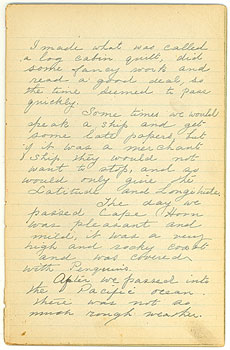 I made what was called
a log cabin quilt, did
some fancy work and
read a good deal, so
the time seemed to pass
quickly.
Some times we would
speak a ship and get
some late papers, but
if it was a merchant
ship they would not
want to stop, and so
would only give the
Latitude and Longitude.
The day we
passed Cape Horn
was pleasant and
mild, it was a very
high and rocky coast
and was covered
with Penguins.
After we passed into
the Pacific ocean
there was not as
much rough weather.